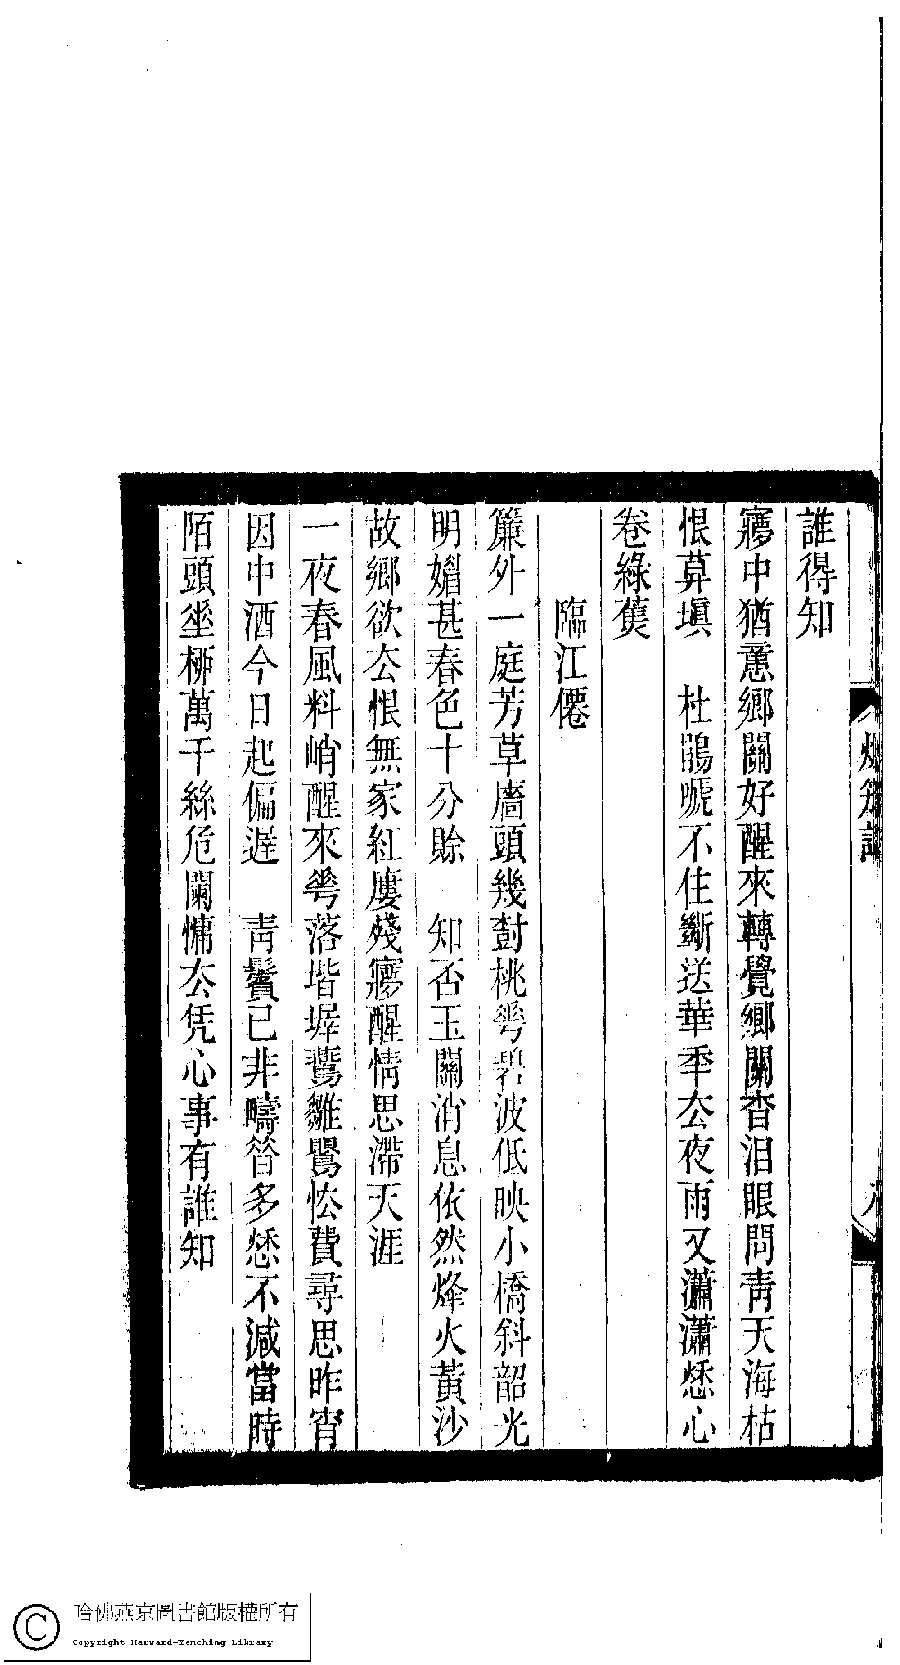 誰得知
寱中猶恴鄉關好醒來轉覺鄉關杳泪眼問靑天海枯
恨莫塡　杜鵑嗁不住斷送華年厺夜雨又瀟瀟愁心
卷綠蕉
臨江僊
簾外一庭芳草牆頭幾樹桃蕚碧波低映小橋斜韶光
明媚甚春色十分賒　知否玉關消息依然烽火黃沙
故鄉欲厺恨無家紅廔殘寱醒情思滯天涯
一夜春風料峭醒來蕚落堦墀鶯雛鷰怯費尋思昨宵
因中酒今日起偏遲　靑鬢已非疇昝多愁不減當時
陌頭坐桺萬千絲危闌慵厺凭心事有誰知
八
哈佛燕京圖書館版權所有
Copyright Harvard-Yenching Library